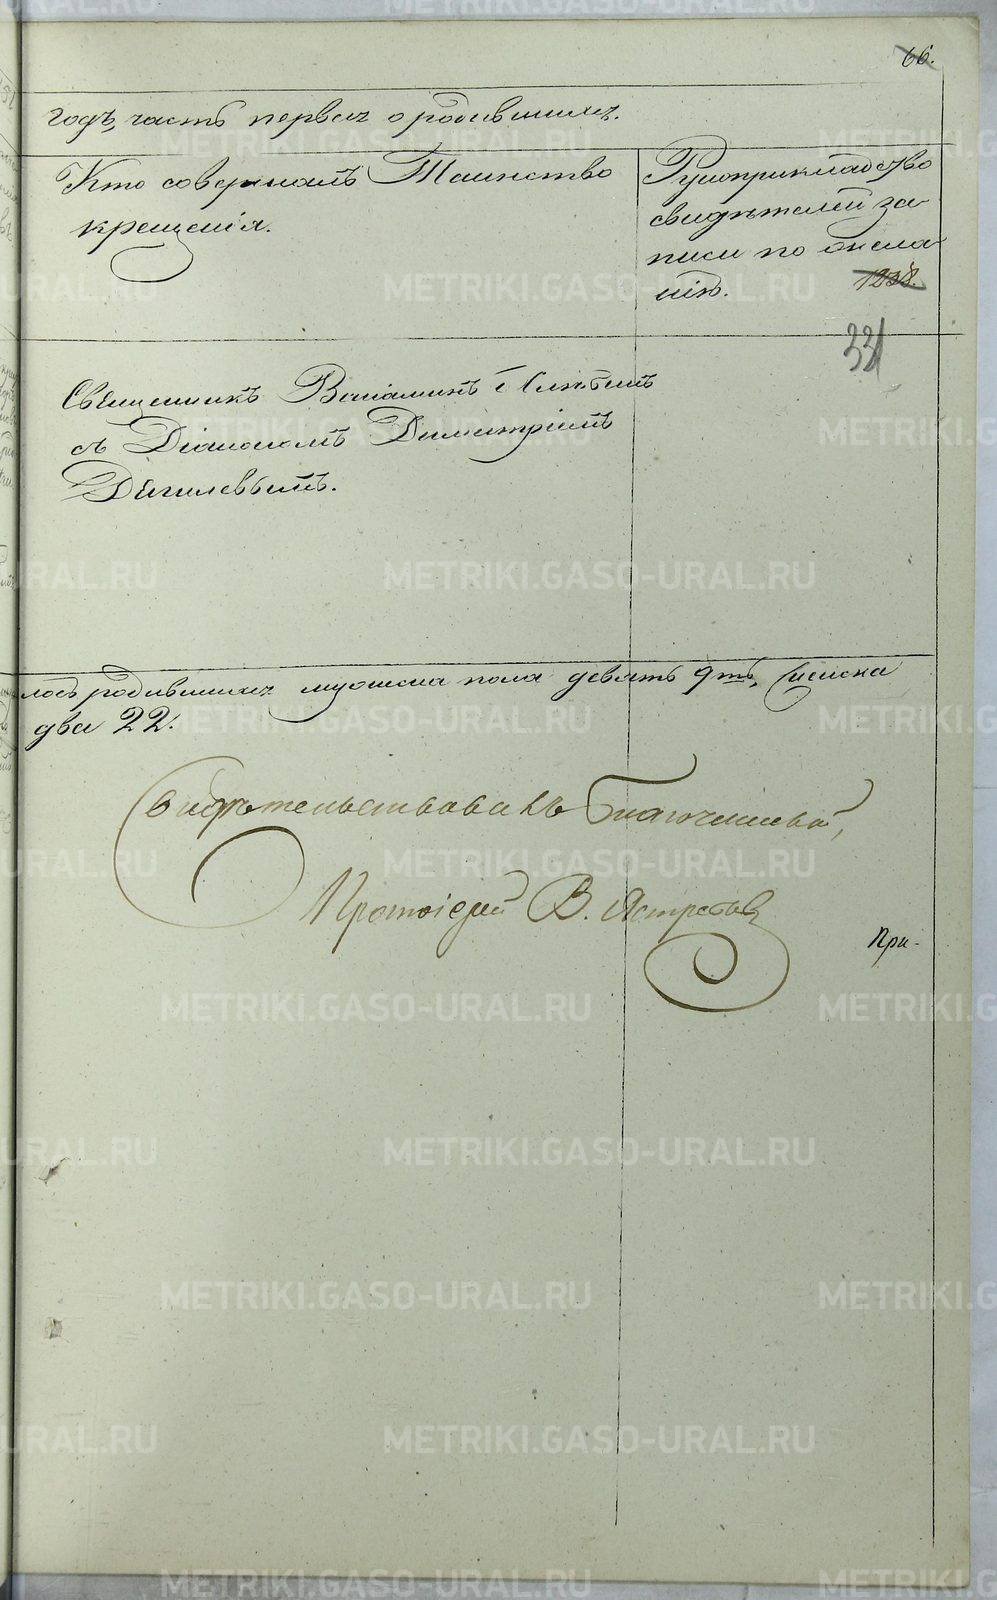 66.
годъ, часть первая о родившихся.
Кто совершалъ Таинство
крещенія.
Рукоприкладство
свидѣтелей за-
писи по жела-
нію.
1238.
331
Священникъ Веніаминъ
съ Діакономъ Димитріемъ
Дягилевымъ.
лось родившихся мужеска пола девять 9ть, женска
два 22.
Свидѣтельствовалъ Благочинный,
Протоіерей В. Ястребовъ
При-
METRIKI.GASO-URAL.RU